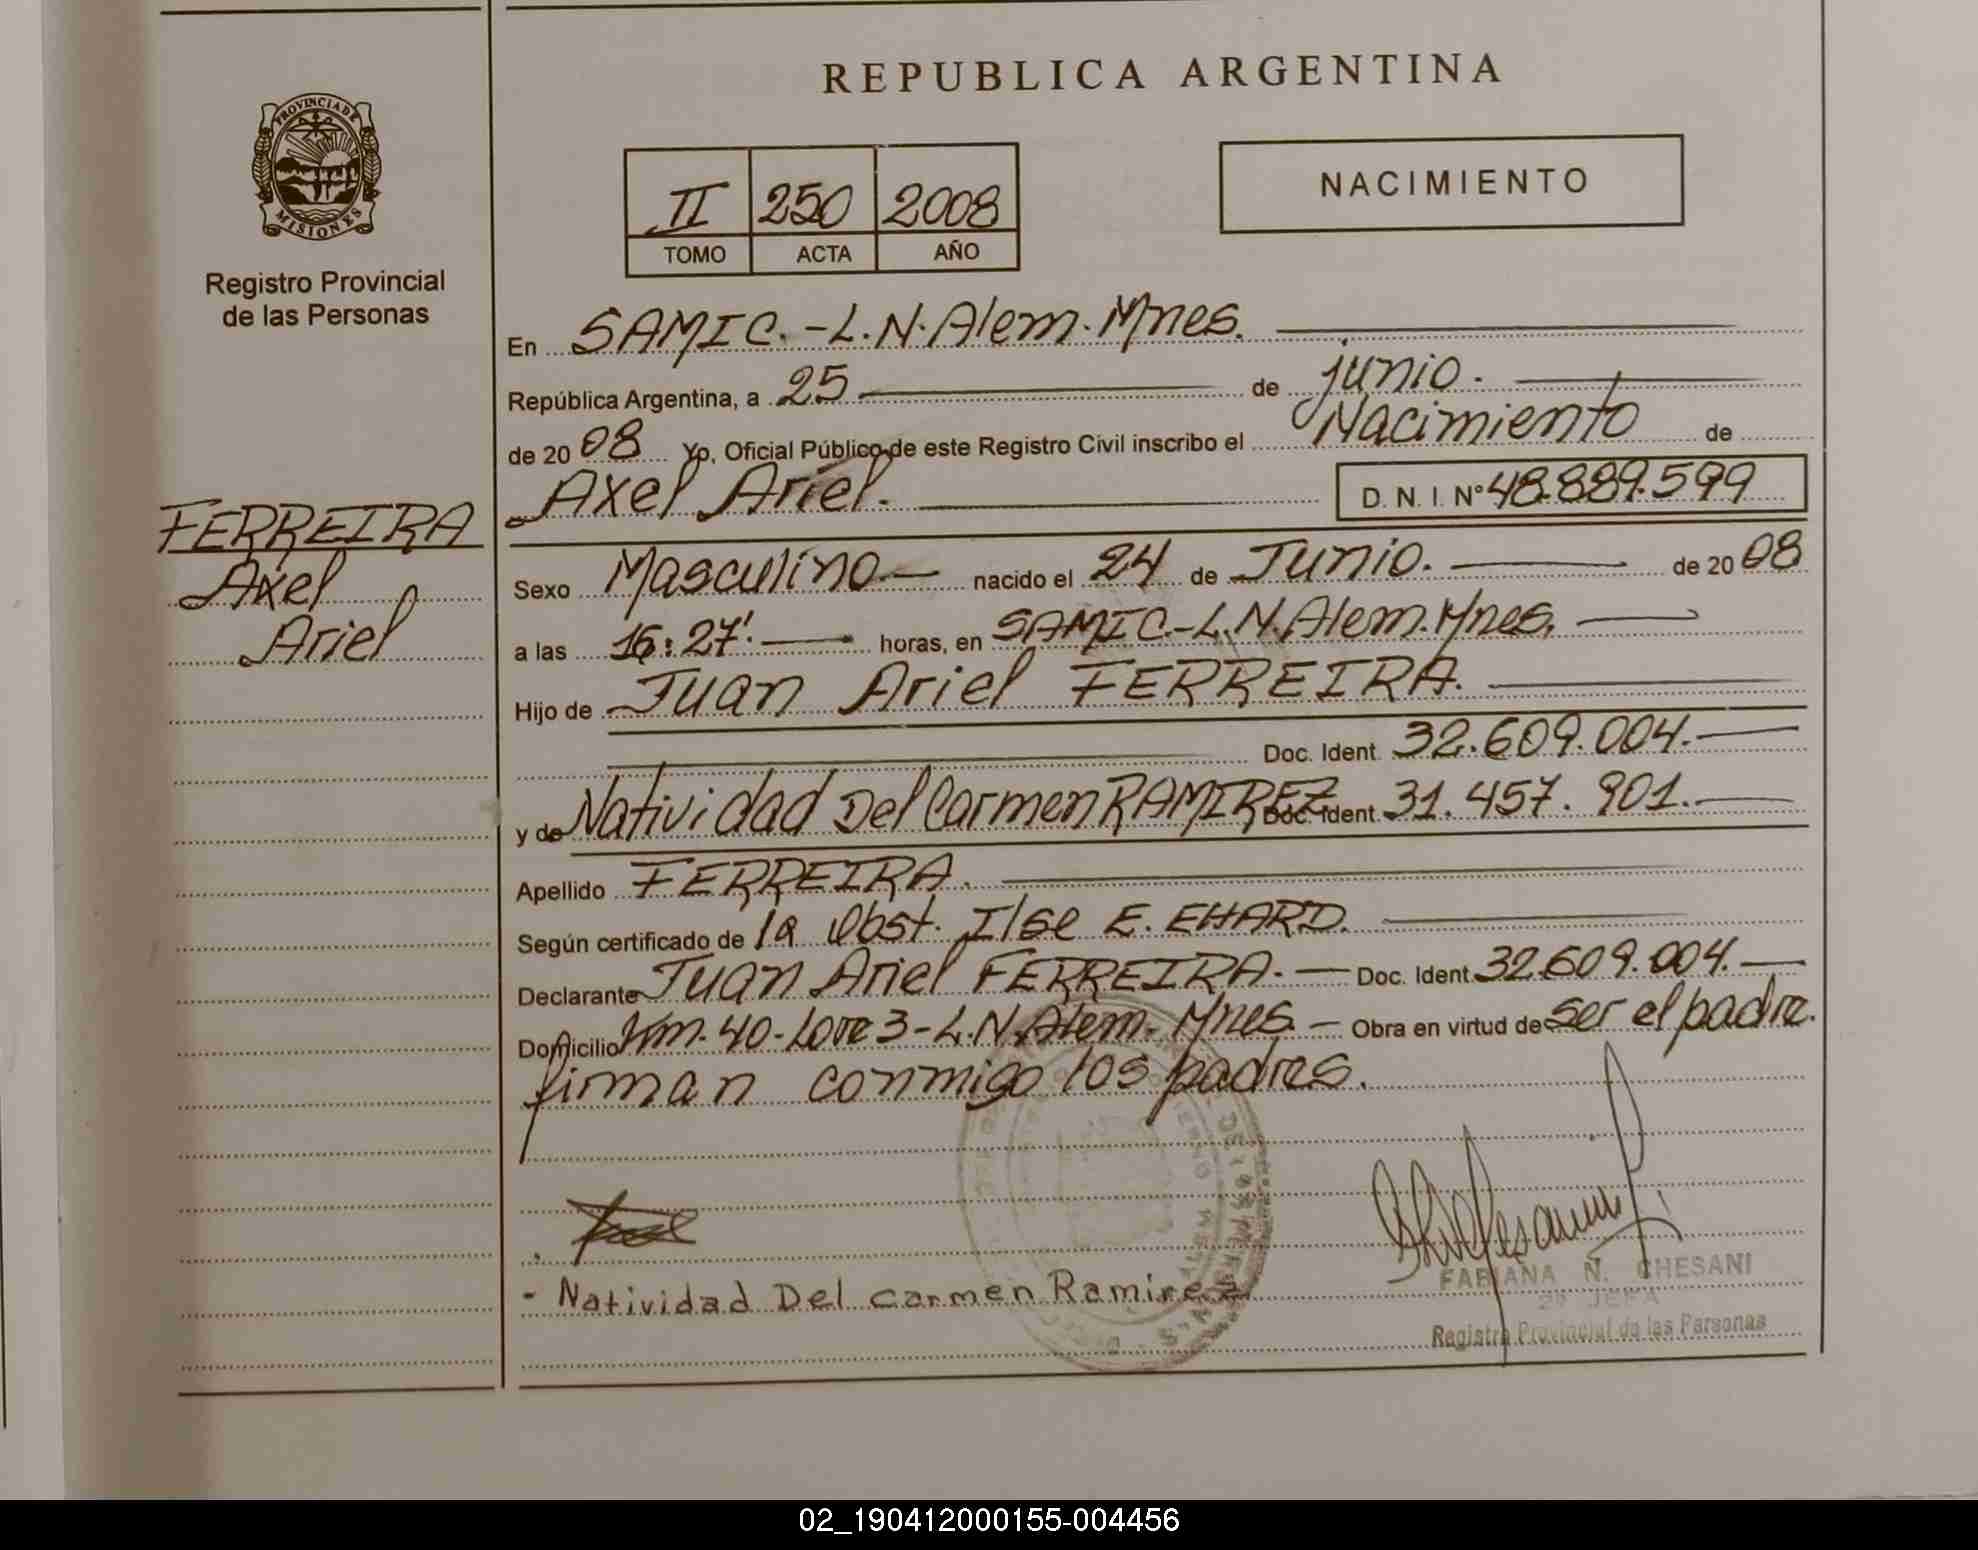 REPUBLICA ARGENTINA
PROVINCIA DE
MISIONES
Registro Provincial
de las Personas
II 250 2008
TOMO ACTA AÑO
NACIMIENTO
En SAMIC.-L.N.Alem.Mnes.
República Argentina, a 25 de junio.
de 20 08 Yo, Oficial Público de este Registro Civil inscribo el Nacimiento de
Axel Ariel. D. N. I. N° 48.889.599
FERREIRA
Axel
Ariel
Sexo Masculino nacido el 24 de Junio. de 20 08
a las 16:27'. horas, en SAMIC.-L.N.Alem.Mnes.
Hijo de Juan Ariel FERREIRA.
Doc. Ident. 32.609.004.
y de Natividad Del Carmen RAMIREZ Doc. Ident. 31.457.901.
Apellido FERREIRA.
Según certificado de la Obst. Ilse E. EHARD.
Declarante Juan Ariel FERREIRA. Doc. Ident. 32.609.004.
Domicilio Km.40-Lote 3-L.N.Alem.Mnes. Obra en virtud de ser el padre.
firman conmigo los padres.
- Natividad Del Carmen Ramirez
FABIANA N. CHESANI
2ª JEFA
Registro Provincial de las Personas
02_190412000155-004456